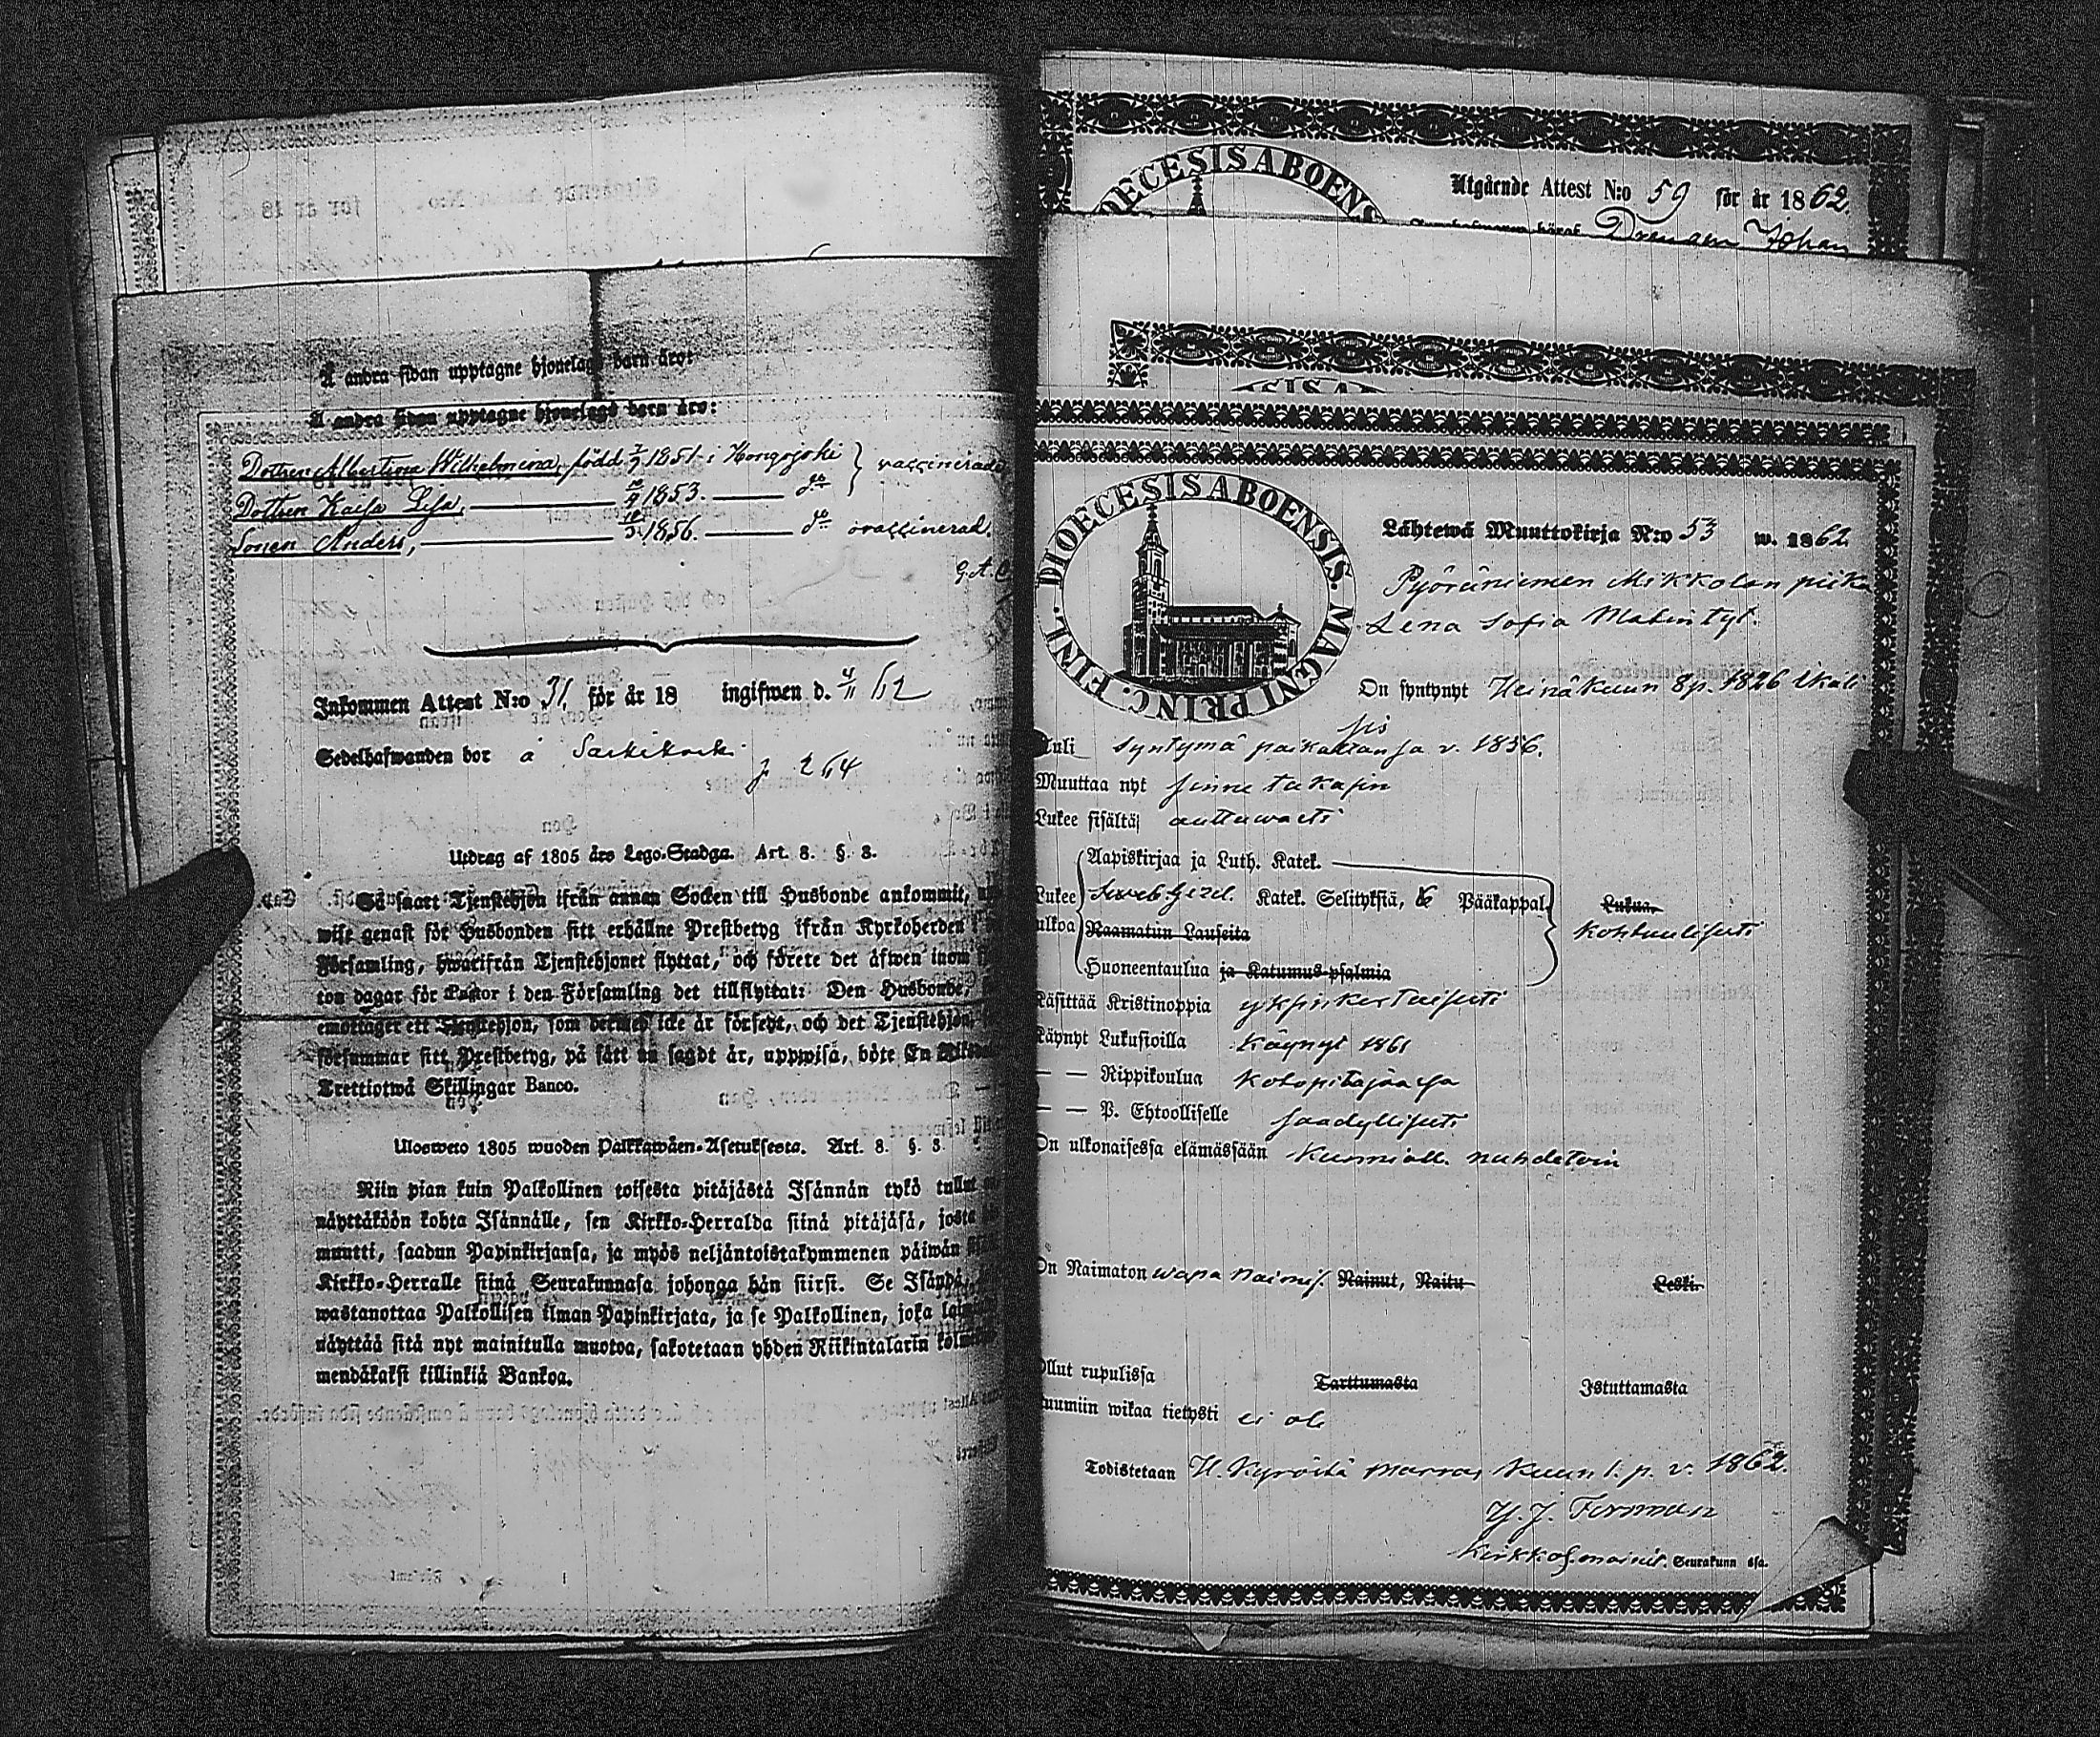 Å andra sidan upptagne hjonelags barn äro:
Å andra sidan upptagne hjonelags barn äro:
Dottren Albertina Wilhelmina, född 1851 i Hongojoki
Dottren Kaisa Lisa, 1853. do vaccinerade
Sonen Anders, 1856. do ovaccinerad.
G. A. C
Inkommen Attest N:o 31, för år 18 ingifwen d. 4/11 62
Sedelhafwanden bor å
p. 264
Utdrag af 1805 års Lego-Stadga. Art. 8. §. 8.
Så snart Tjenstehjon ifrån annan Socken till Husbonde ankommit,
wise genast för Husbonden sitt erhållne Prestbetyg ifrån Kyrkoherden i
Församling, hwarifrån Tjenstehjonet flyttat, och förete det äfwen inom
ton dagar för Pastor i den Församling det tillflyttat: Den Husbonde,
emottager ett Tjenstehjon, som dermed icke är försedt, och det Tjenstehjon,
försummar sitt Prestbetyg, på sätt nu sagdt är, uppwisa, böte En
Trettiotwå Skillingar Banco.
Ulosweto 1805 wuoden Palkkawäen-Asetuksesta. Art. 8. §. 8.
Niin pian kuin Palkollinen toisesta pitäjästä Isännän tykö tullut
näyttäköön kohta Isännälle, sen Kirkko-Herralda siinä pitäjäsä, josta
muutti, saadun Papinkirjansa, ja myös neljäntoistakymmenen päiwän
Kirkko-Herralle siinä Seurakunnasa johonga hän siirsi. Se Isändä,
wastanottaa Palkollisen ilman Papinkirjata, ja se Palkollinen, joka
näyttää sitä nyt mainitulla muotoa, sakotetaan yhden Riikintalarin
mendäkaksi killinkiä Bankoa.
DIOECESIS ABOENS
Utgående Attest N:o 59 för år 1862.
Drengen Johan
DIOECESIS ABOENSIS. MAGNI PRINC. FINL.
Lähtewä Muuttokirja N:o 53 w. 1862.
Pyöräniemen Mikkolan piika
Lena Sofia Matintyt.
On syntynyt Heinäkuun 8 p. 1826 Ikali
sis
Tuli syntymä paikastansa v. 1856.
Muuttaa nyt sinne takasin
Lukee sisältä auttuwasti
Aapiskirjaa ja Luth. Katek.
Lukee Sweb. Gezel. Katek. Selityksiä, 6 Pääkappal. Lukua.
ulkoa Raamatun Lauseita kohtuulisesti
Huoneentaulua ja Katumus-psalmia
Käsittää Kristinoppia yksinkertaisesti
Käynyt Lukusioilla Käynyt 1861
— — Rippikoulua Kotopitäjäsä
— — P. Ehtoolliselle säädyllisesti
On ulkonaisessa elämässään Kunniall. nuhdetoin
On Naimaton wapa naimis. Nainut, Naitu Leski.
Ollut rupulissa Tarttumasta Istuttamasta
ruumiin wikaa tietysti ei ole
Todistetaan H. Kyröstä marras Kuun 1. p. v. 1862.
Seurakunn sa.